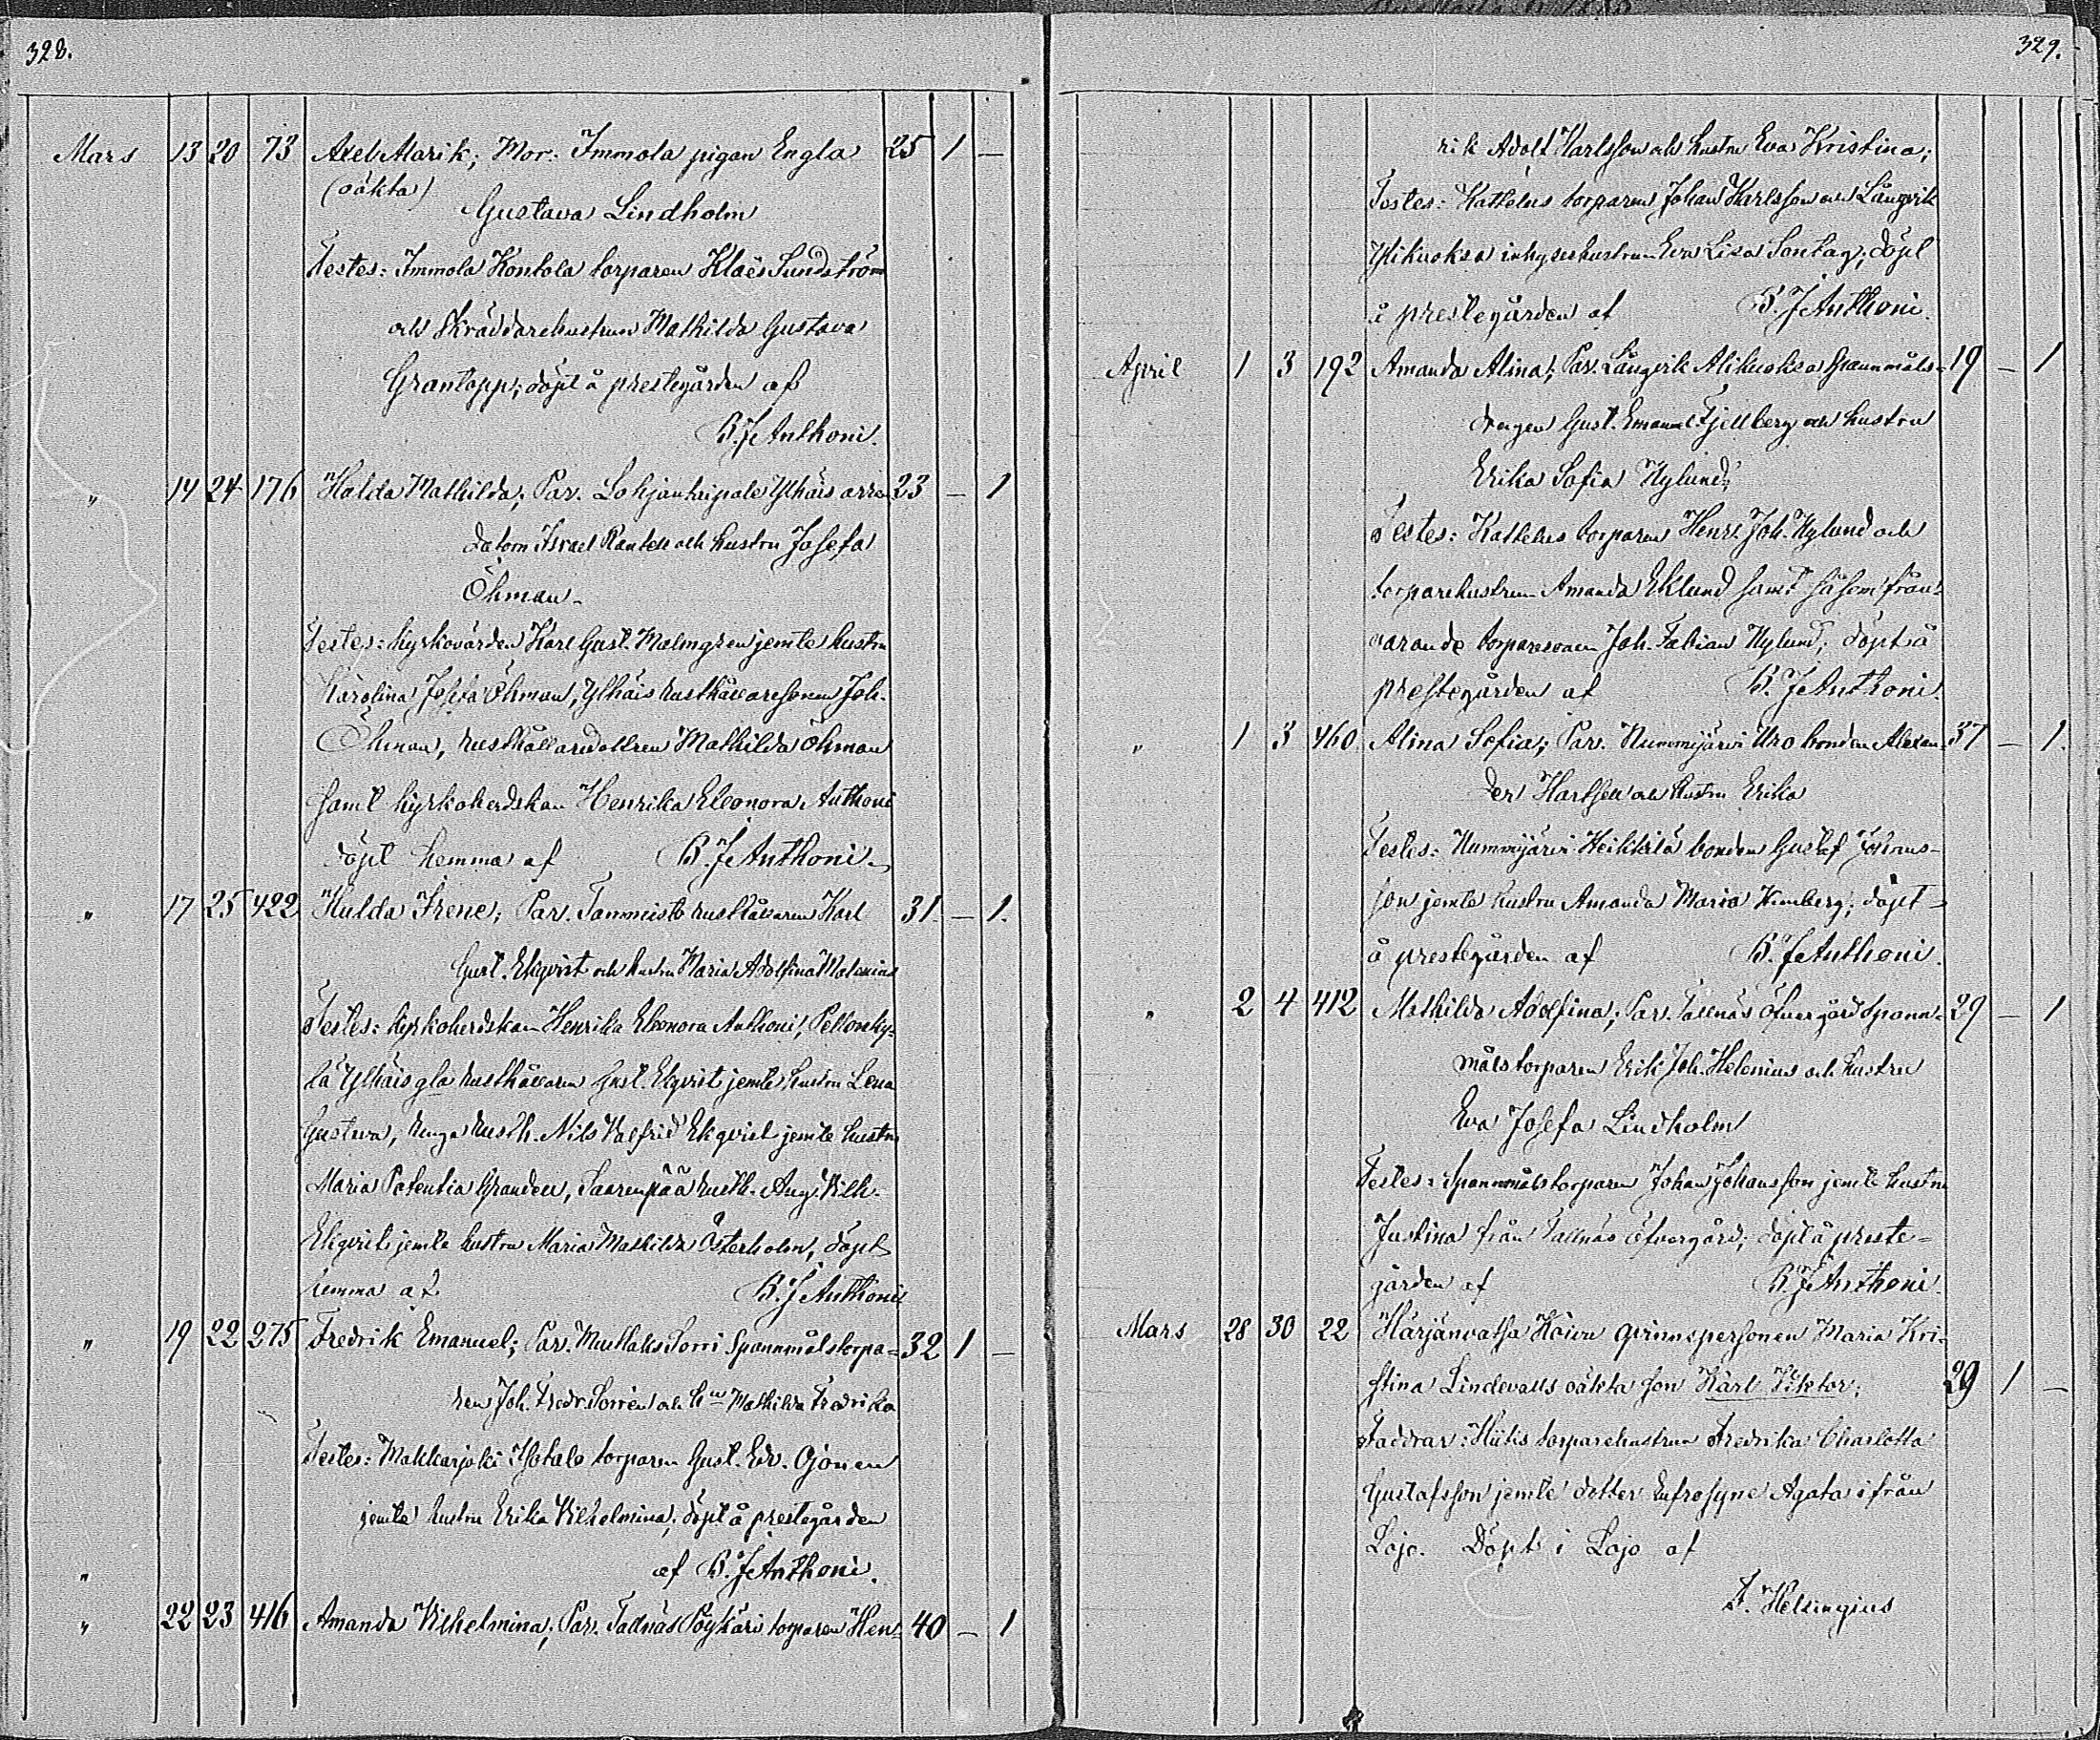 328.
Mars 13 20 73 Axel Alarik; Mor: Immola pigan Engla 25 1 —
(oäkta)
Gustava Lindholm
Testes: Immola Kontola torparen Klaës Sundström
och Skräddarehustrun Mathilda Gustava
Grantopp; döpt å prestegården af
B. J. Anthoni.
" 14 24 176 Hulda Mathilda; Par. Lohjantaipale Ylhäis arren 23 — 1
datorn Israel Rantell och hustru Josefa
Öhman.
Testes: kyrkovärden Karl Gust. Malmgren jemte hustru
Karolina Josefa Öhman, Ylhäis rusthållaresonen Joh.
Öhman, rusthållaredottren Mathilda Öhman
samt kyrkoherdskan Henrika Eleonora Anthoni
döpt hemma af B. J. Anthoni.
" 17 25 422 Hulda Irene; Par. Tammisto rusthållaren Karl 31 — 1.
Gust. Ekqvist och hustru Maria Adolfina Malenius
Testes: kyrkoherdskan Henrika Eleonora Anthoni, Pellonky-
lä Ylhäis gla rusthållaren Gust. Ekqvist jemte hustru Lena
Gustava, unga rusth. Nils Valfrid Ekqvist jemte hustru
Maria Potentia Grandell, Saarenpää rusth. Aug. Vilh.
Ekqvist jemte hustru Maria Mathilda Österholm, döpt
hemma af B. J. Anthoni
" 19 22 275 Fredrik Emanuel; Par. Maattaks Sorri Spannmålstorpa- 32 1 —
ren Joh. Fredr. Sorrén och h:u Mathilda Fredrika
Testes: Makkarjoki Isotalo torparen Gust. Edv. Ojonen
jemte hustru Erika Vilhelmina; döpt å prestegården
" af B. J. Anthoni.
" 22 23 416 Amanda Vilhelmina; Par. Tallnäs Pöykäri torparen Hen- 40 — 1
329.
rik Adolf Karlsson och hustru Eva Kristina;
Testes: Kattelus torparen Johan Karlsson och Långvik
Ylikuoksa inhyseshustrun Eva Lisa Sontag; döpt
å prestegården af B. J. Anthoni.
April 1 3 192 Amanda Alina; Par. Långvik Alikuoksa Spannmåls- 19 — 1
drengen Gust. Emanuel Fjellberg och hustru
Erika Sofia Nylund;
Testes: Kattelus torparen Henr. Joh. Nylund och
torparehustrun Amanda Eklund samt såsom från-
varande torparesonen Joh. Fabian Nylund; döpt å
prestegården af B. J. Anthoni.
" 1 3 460 Alina Sofia; Par. Nummijärvi Uro bonden Alexan- 37 — 1.
der Karlsson och hustru Erika
Testes: Nummijärvi Heikkilä bonden Gustaf Johans-
son jemte hustru Amanda Maria; döpt
å prestegården af B. J. Anthoni.
" 2 4 412 Mathilda Adolfina; Par. Tallnäs Öfvergård Spann- 29 — 1
målstorparen Erik Joh. Helenius och hustru
Eva Josefa Lindholm
Testes: Spannmålstorparen Johan Johansson jemte hustru
Justina från Tallnäs Öfvergård; döpt å preste-
gården af B. J. Anthoni.
Mars 28 30 22 Härjänvatsa Koivu qvinnspersonen Maria Kri-
stina Lindevalls oäkta son Karl Viktor; 29 1 —
Faddrar: Hiitis torparehustrun Fredrika Charlotta
Gustafsson jemte dotter Eufrosyne Agata ifrån
Lojo. Döpt i Lojo af
F. Helsingius